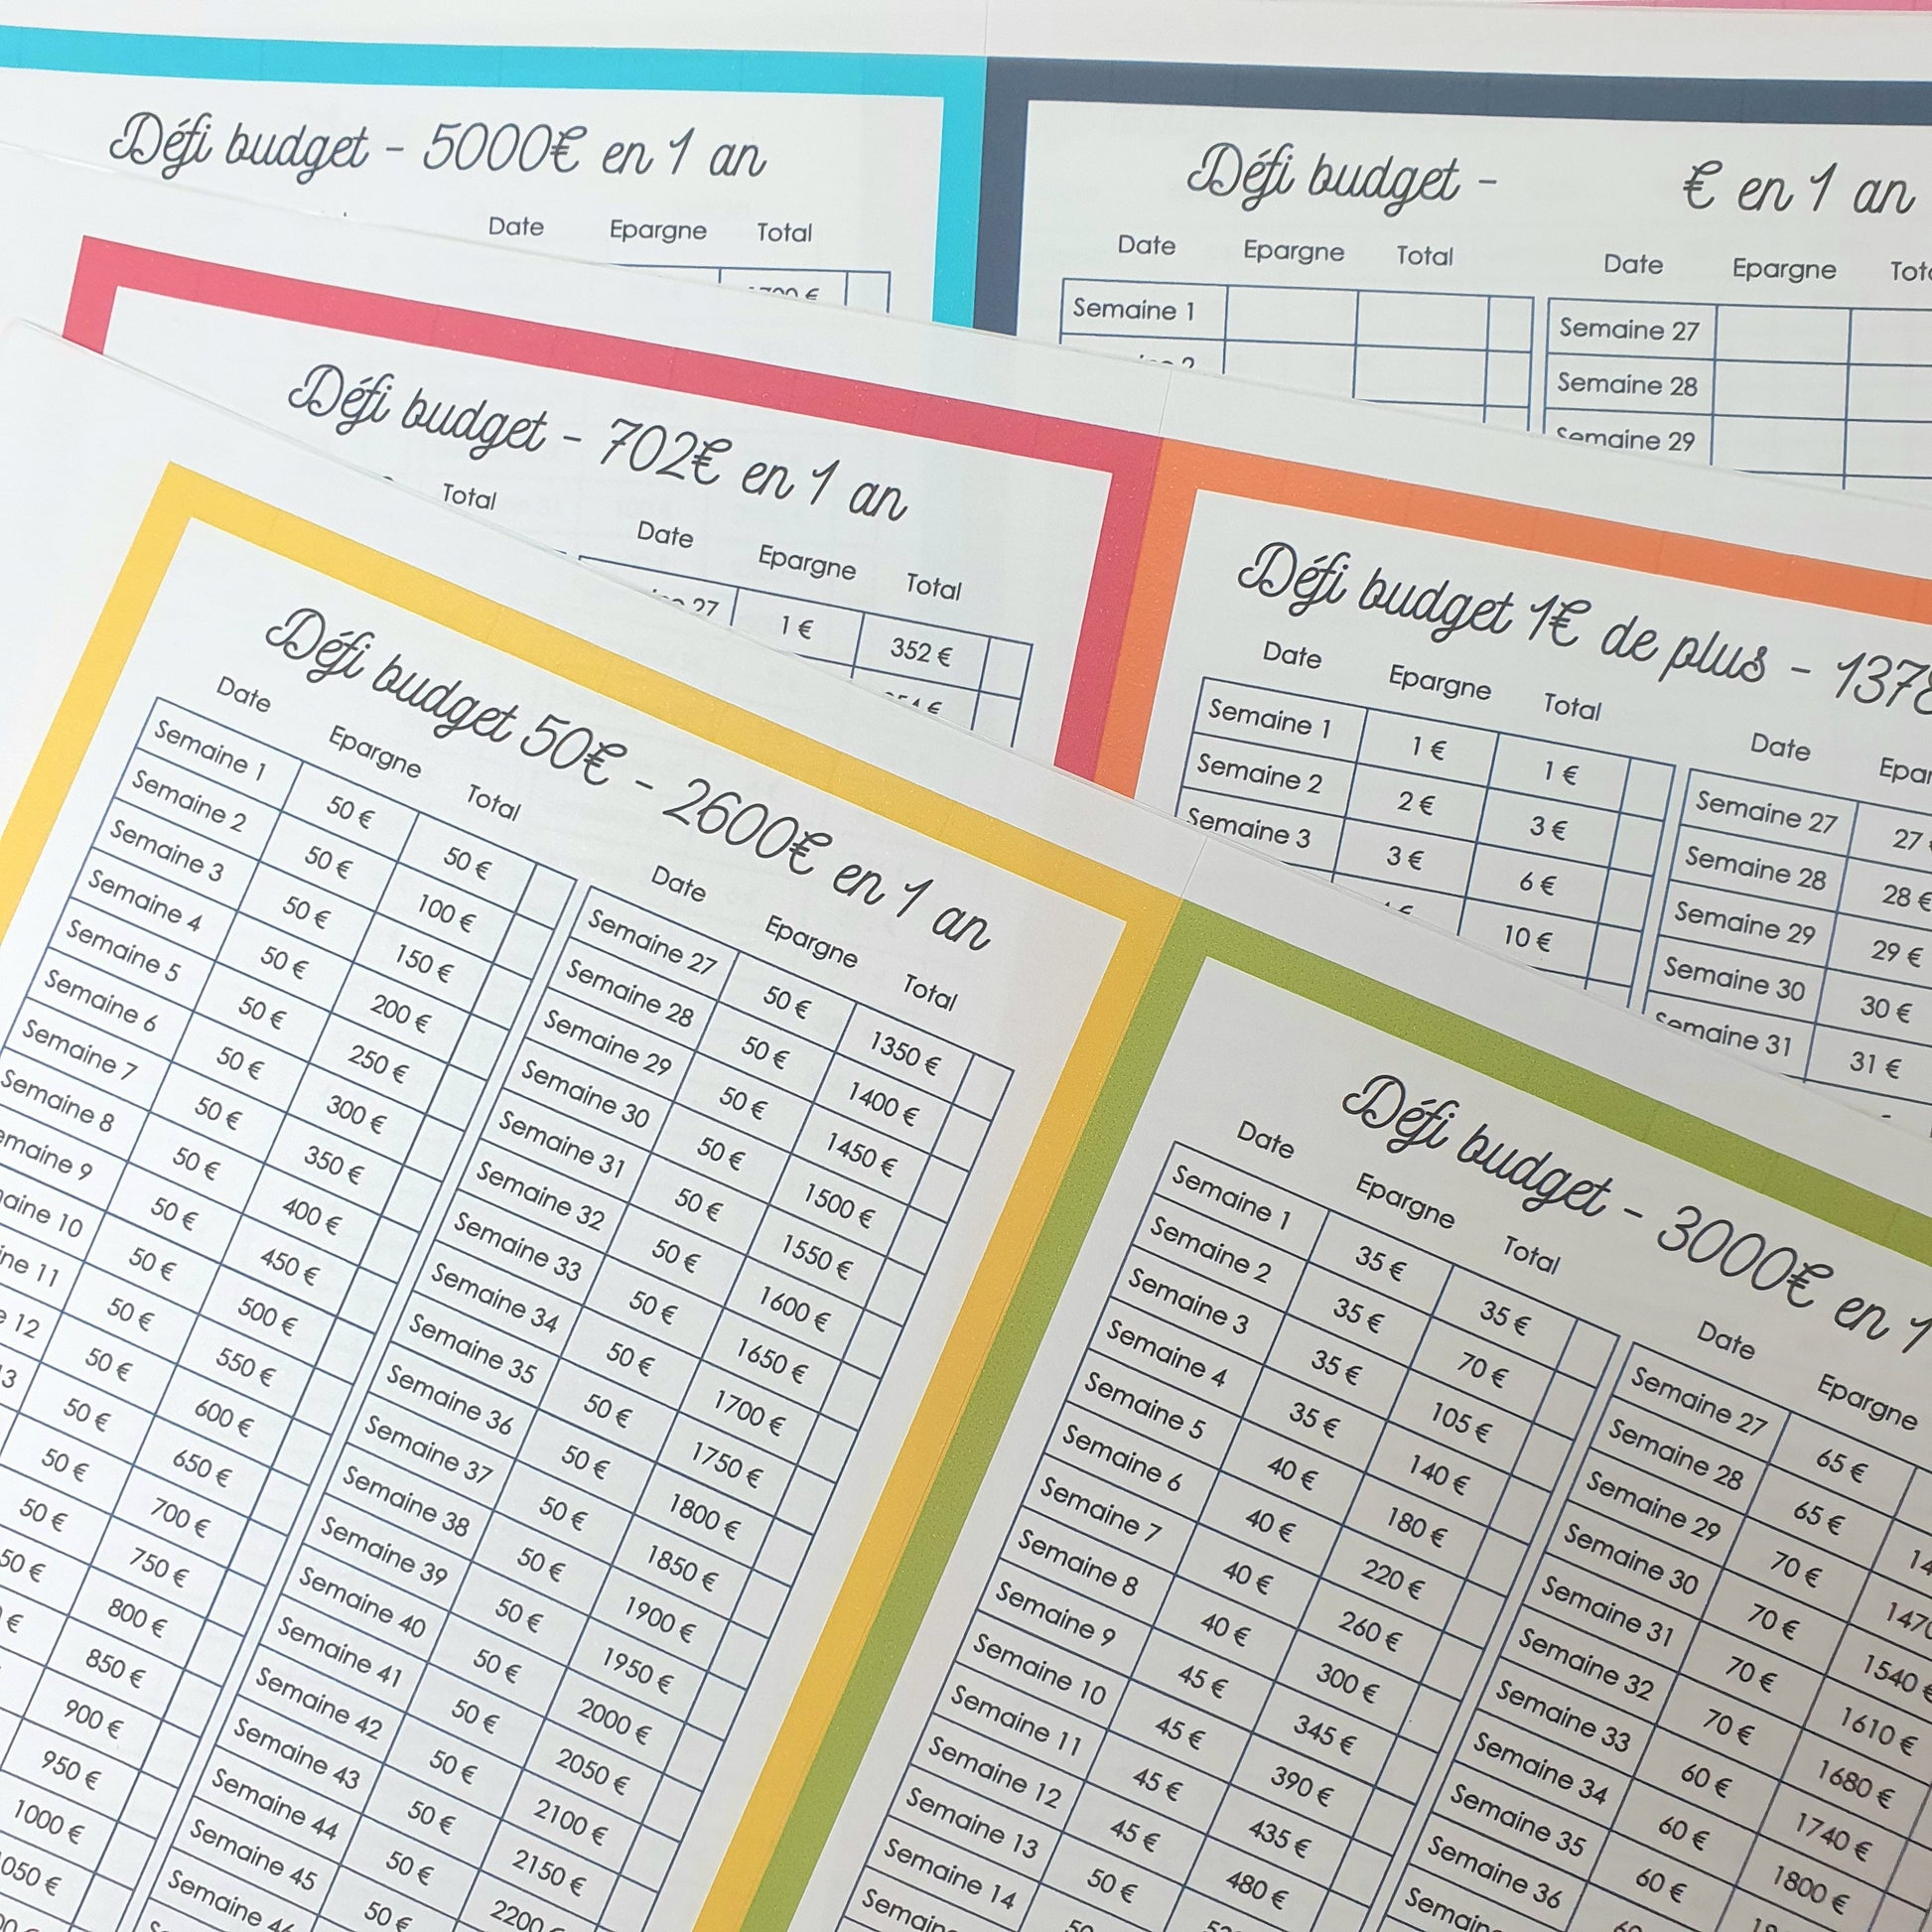 Défi budget - 5000€ en 1 an
Date Epargne Total
Défi budget - € en 1 an
Date Epargne Total
Semaine 1
Date Epargne
Semaine 27
Semaine 28
Semaine 29
Défi budget - 702€ en 1 an
Total
Date Epargne Total
27 1 € 352 €
Défi budget 1€ de plus - 1378
Date Epargne Total
Semaine 1 1 € 1 €
Semaine 2 2 € 3 €
Semaine 3 3 € 6 €
10 €
Date
Semaine 27 27
Semaine 28 28 €
Semaine 29 29 €
Semaine 30 30 €
Semaine 31 31 €
Défi budget 50€ - 2600€ en 1 an
Date Epargne Total
Semaine 1 50 € 50 €
Semaine 2 50 € 100 €
Semaine 3 50 € 150 €
Semaine 4 50 € 200 €
Semaine 5 50 € 250 €
Semaine 6 50 € 300 €
Semaine 7 50 € 350 €
Semaine 8 50 € 400 €
emaine 9 50 € 450 €
aine 10 50 € 500 €
ne 11 50 € 550 €
12 50 € 600 €
13 50 € 650 €
50 € 700 €
50 € 750 €
50 € 800 €
€ 850 €
900 €
950 €
1000 €
1050 €
Date Epargne Total
Semaine 27 50 € 1350 €
Semaine 28 50 € 1400 €
Semaine 29 50 € 1450 €
Semaine 30 50 € 1500 €
Semaine 31 50 € 1550 €
Semaine 32 50 € 1600 €
Semaine 33 50 € 1650 €
Semaine 34 50 € 1700 €
Semaine 35 50 € 1750 €
Semaine 36 50 € 1800 €
Semaine 37 50 € 1850 €
Semaine 38 50 € 1900 €
Semaine 39 50 € 1950 €
Semaine 40 50 € 2000 €
Semaine 41 50 € 2050 €
Semaine 42 50 € 2100 €
Semaine 43 50 € 2150 €
Semaine 44 50 € 2200
Semaine 45 50 €
Semaine
Défi budget - 3000€ en 1
Date Epargne Total
Semaine 1 35 € 35 €
Semaine 2 35 € 70 €
Semaine 3 35 € 105 €
Semaine 4 35 € 140 €
Semaine 5 40 € 180 €
Semaine 6 40 € 220 €
Semaine 7 40 € 260 €
Semaine 8 40 € 300 €
Semaine 9 45 € 345 €
Semaine 10 45 € 390 €
Semaine 11 45 € 435 €
Semaine 12 45 € 480 €
Semaine 13 50 €
Semaine 14 50
Date Epargne
Semaine 27 65 €
Semaine 28 65 €
Semaine 29 70 € 1470
Semaine 30 70 € 1540 €
Semaine 31 70 € 1610 €
Semaine 32 70 € 1680 €
Semaine 33 60 € 1740 €
Semaine 34 60 € 1800 €
Semaine 35 60 €
Semaine 36 60